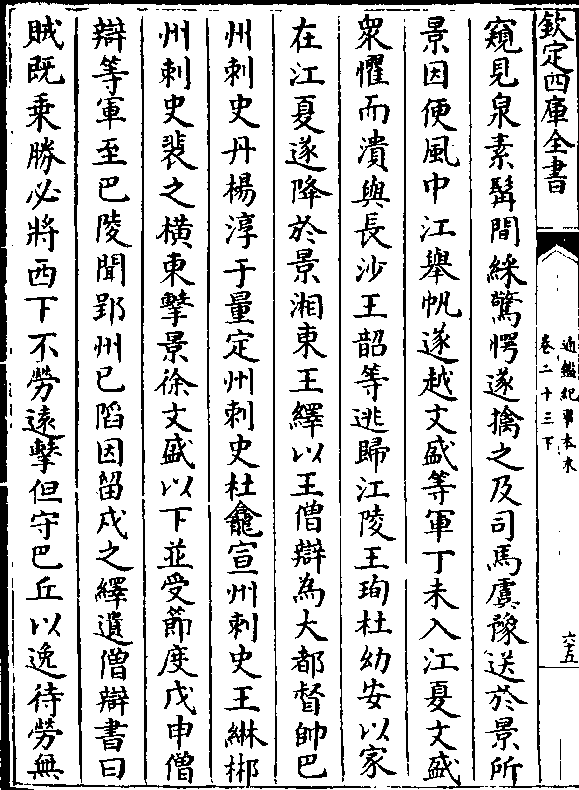 欽定四庫全書
通鑑紀事本末
卷二十三下
六五
窺見泉素髯間綵驚愕遂擒之及司馬虞豫送於景所
景因便風中江舉帆遂越文盛等軍丁未入江夏文盛
衆懼而潰與長沙王韶等逃歸江陵王珣杜幼安以家
在江夏遂降於景湘東王繹以王僧辯為大都督帥巴
州刺史丹楊淳于量定州刺史杜龕宣州刺史王綝郴
州刺史裴之横東擊景徐文盛以下並受節度戊申僧
辯等軍至巴陵聞郢州已䧟因留戍之繹遺僧辯書曰
賊既乗勝必將西下不勞逺擊但守巴丘以逸待勞無